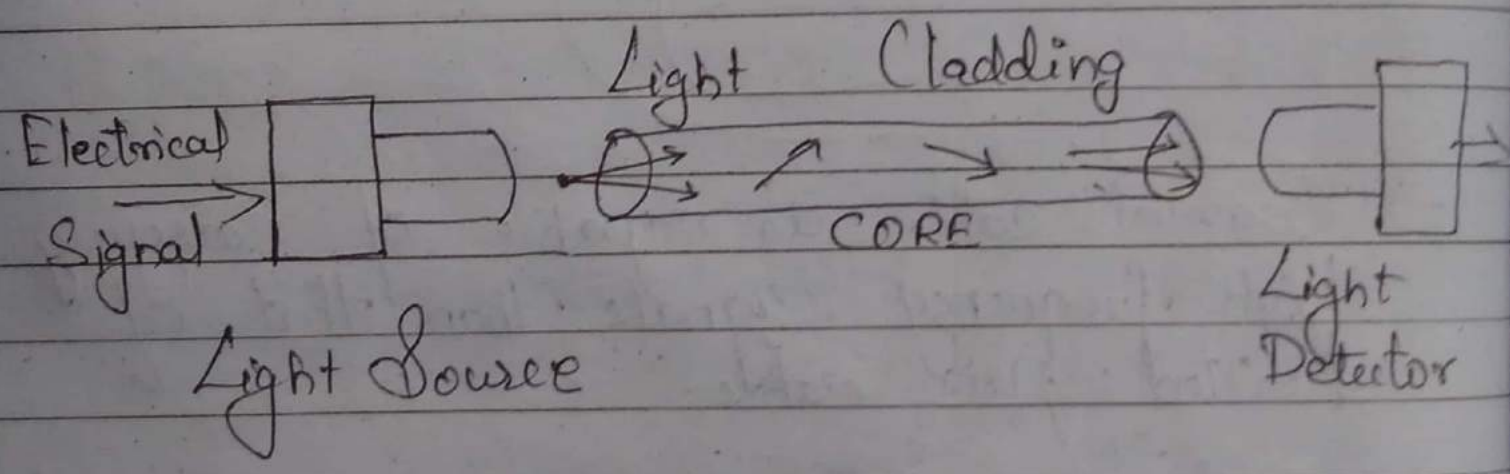 Light Cladding
Electrical
Signal
CORE
Light Source
Light
Detector